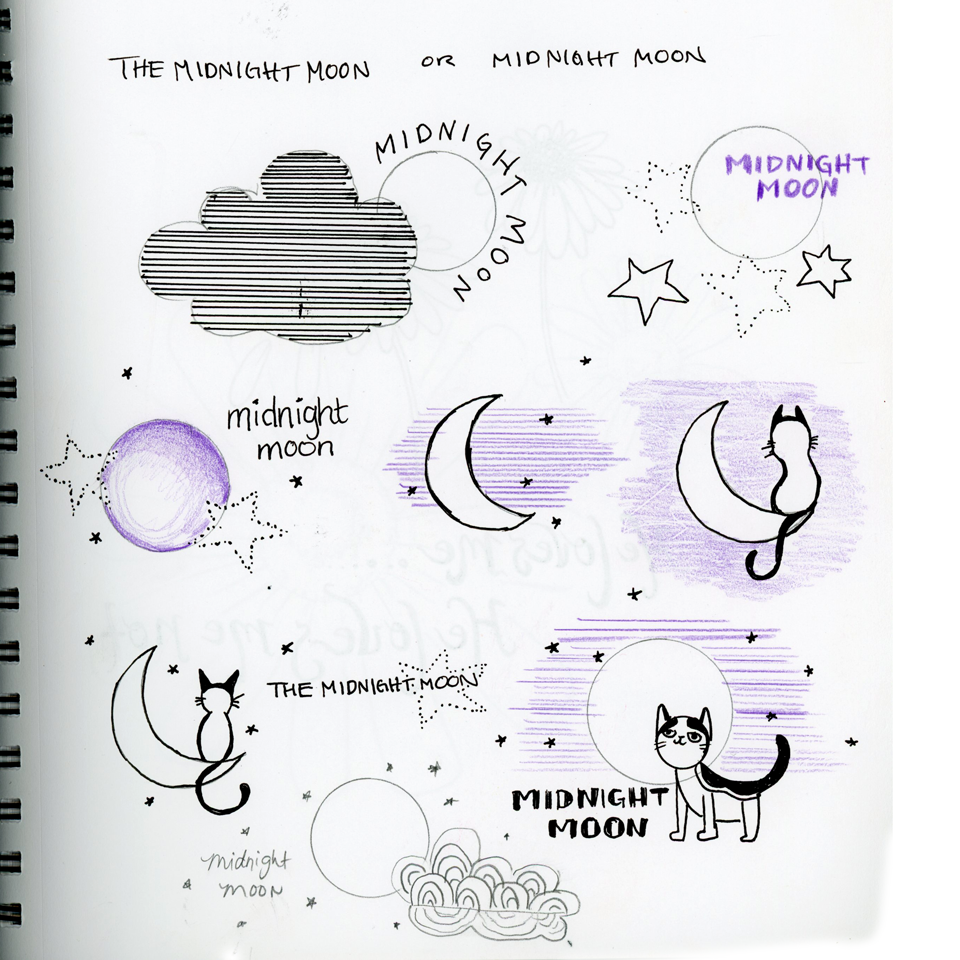 THE MIDNIGHT MOON OR MIDNIGHT MOON
MIDNIGHT MOON
MIDNIGHT
MOON
midnight
moon
THE MIDNIGHT MOON
MIDNIGHT
MOON
midnight
moon
He loves me....
He loves me not